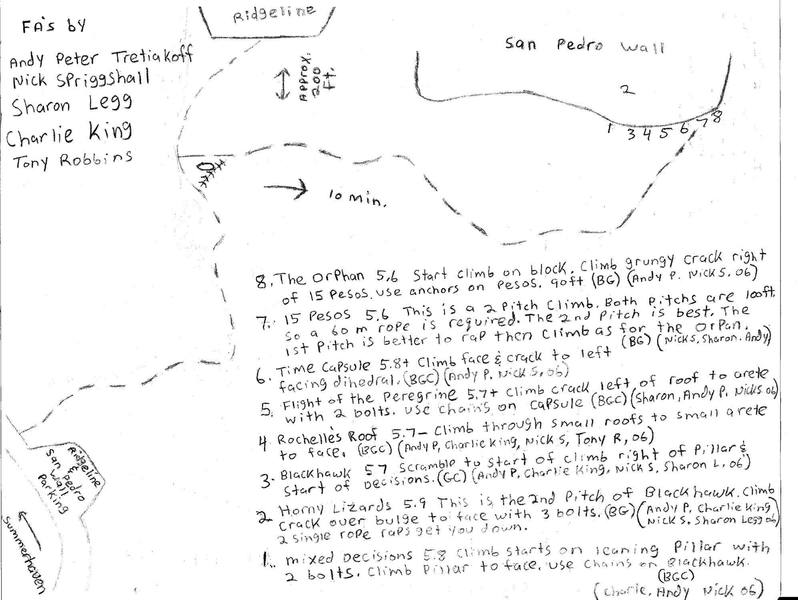 FA's by
Andy Peter Tretiakoff
Nick Spriggshall
Sharon Legg
Charlie King
Tony Robbins
Ridgeline
Approx. 200 Ft.
San Pedro Wall
2
1 3 4 5 6 7 8
10 min.
8. The Orphan 5.6 Start climb on block. Climb grungy crack right
of 15 Pesos. use anchors on Pesos. 90ft (BG) (Andy P. Nick S, 06)
7. 15 Pesos 5.6 This is a 2 Pitch Climb. Both Pitchs are 100ft.
so a 60 m rope is required. The 2nd Pitch is best. The
1st Pitch is better to rap then climb as for the Orpan.
(BG) (Nick S, Sharon, Andy)
6. Time Capsule 5.8+ Climb face & crack to left
facing dihedral. (BGC) (Andy P, Nick S, 06)
5. Flight of the Peregrine 5.7+ Climb crack left of roof to arete
with 2 bolts. use chains on capsule (BGC) (Sharon, Andy P, Nick S 06)
4 Rochelle's Roof 5.7- Climb through small roofs to small arete
to face. (BGC) (Andy P, Charlie King, Nick S, Tony R, 06)
3. Blackhawk 5.7 Scramble to start of climb right of Pillar &
start of Decisions. (GC) (Andy P, Charlie King, Nick S, Sharon L, 06)
2 Horny Lizards 5.9 This is the 2nd Pitch of Blackhawk. Climb
crack over bulge to face with 3 bolts. (BG) (Andy P, Charlie King
Nick S. Sharon Legg 06)
2 single rope raps get you down.
1. mixed Decisions 5.8 Climb starts on leaning Pillar with
2 bolts. Climb Pillar to face. use chains on Blackhawk.
(BGC)
(Charie, Andy Nick 06)
Ridgeline
&
San Pedro
Wall
Parking
Summerhaven